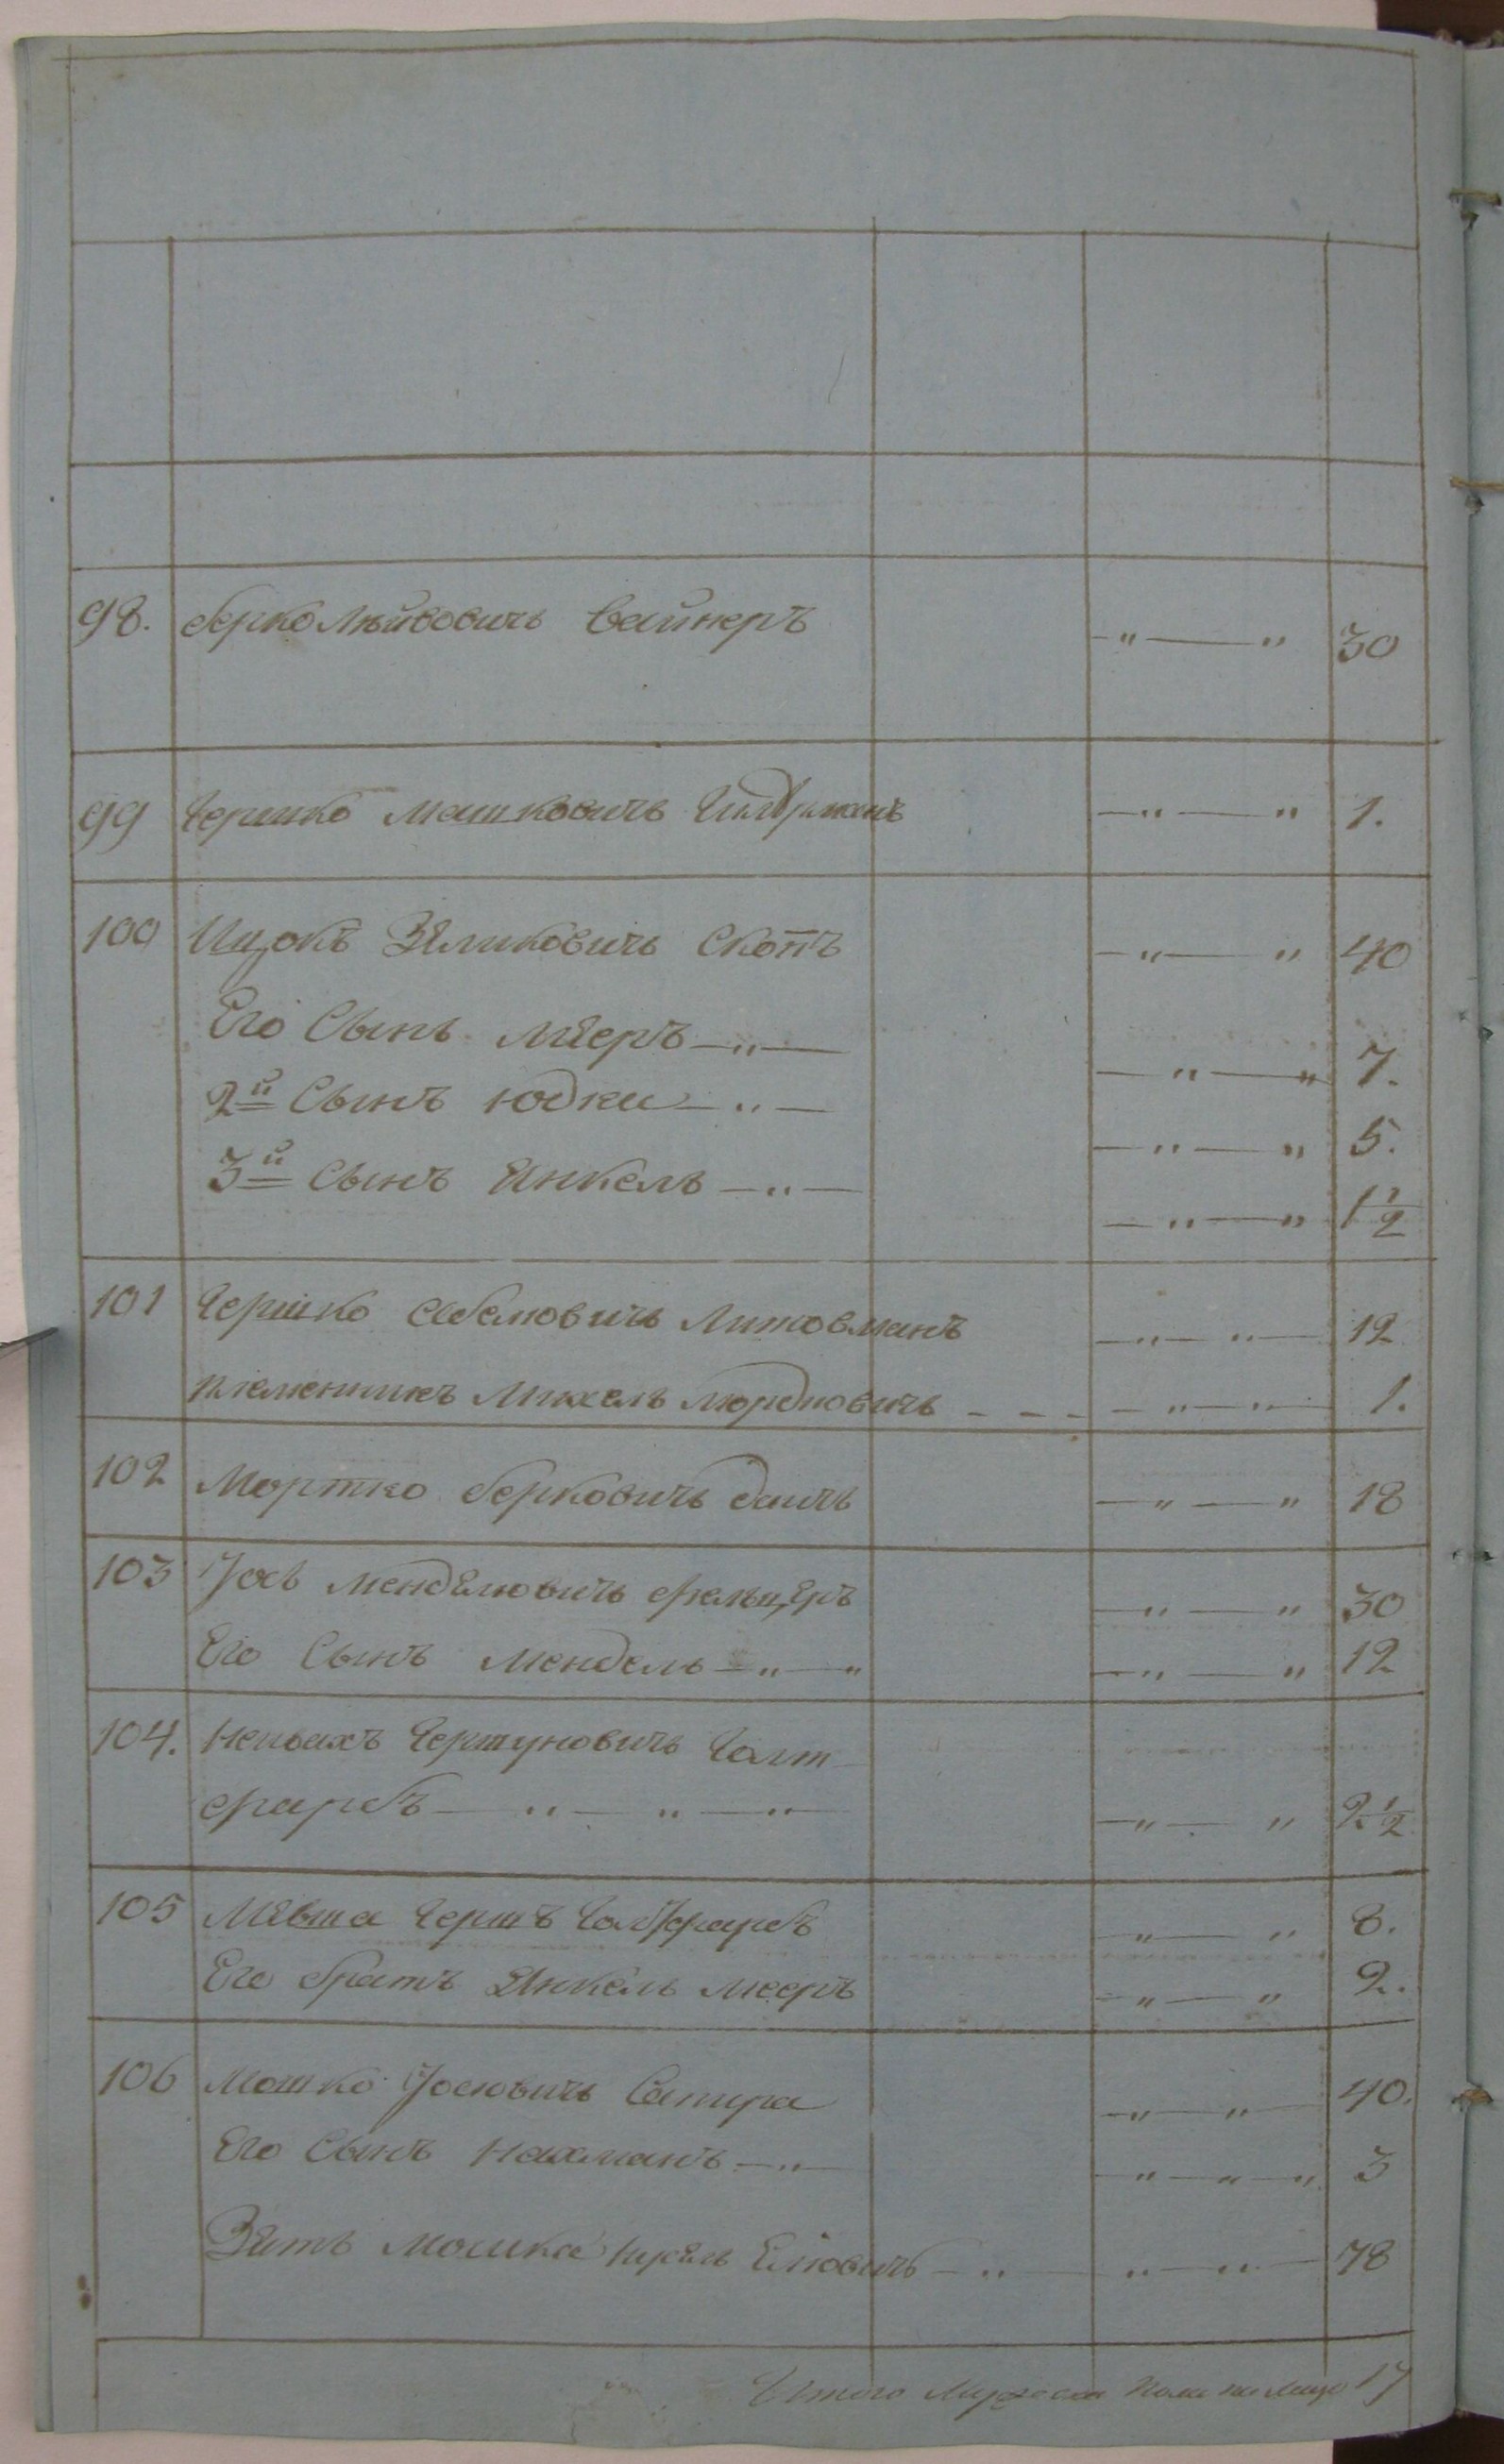 98. Берко Лейвовичъ Вайнеръ —"——" 30
99 Гершко Машковичъ —"——" 1.
100 Ицокъ Зеликовичъ Скопъ —"——" 40
Его Сынъ Мееръ —"— —"——" 7.
2й Сынъ Юдки —"— —"——" 5.
3й Сынъ Янкель —"— —"——" 1½
101 Гершко Абелювичъ Литовманъ —"—"— 12
племенникъ Михель Мордковичъ - - - —"—"— 1.
102 Мортко Берковичъ —"——" 18
103 Іось Менделювичъ Фельцеръ —"——" 30
Его Сынъ Мендель —"—" —"——" 12
104. Гершуновичъ Галт
фарбъ —"—"—"— —"——" 2½
105 Мевша Гершъ Галтфарбъ —"——" 8.
Его братъ Янкель Мееръ —"——" 2.
106 Мошко Іосювичъ Сапира —"—"— 40.
Его Сынъ Нахманъ —"— —"—"—" 3
Зять Мошка Еліовичъ —"— "—"— 78
Итого Мужеска пола на лицо 17